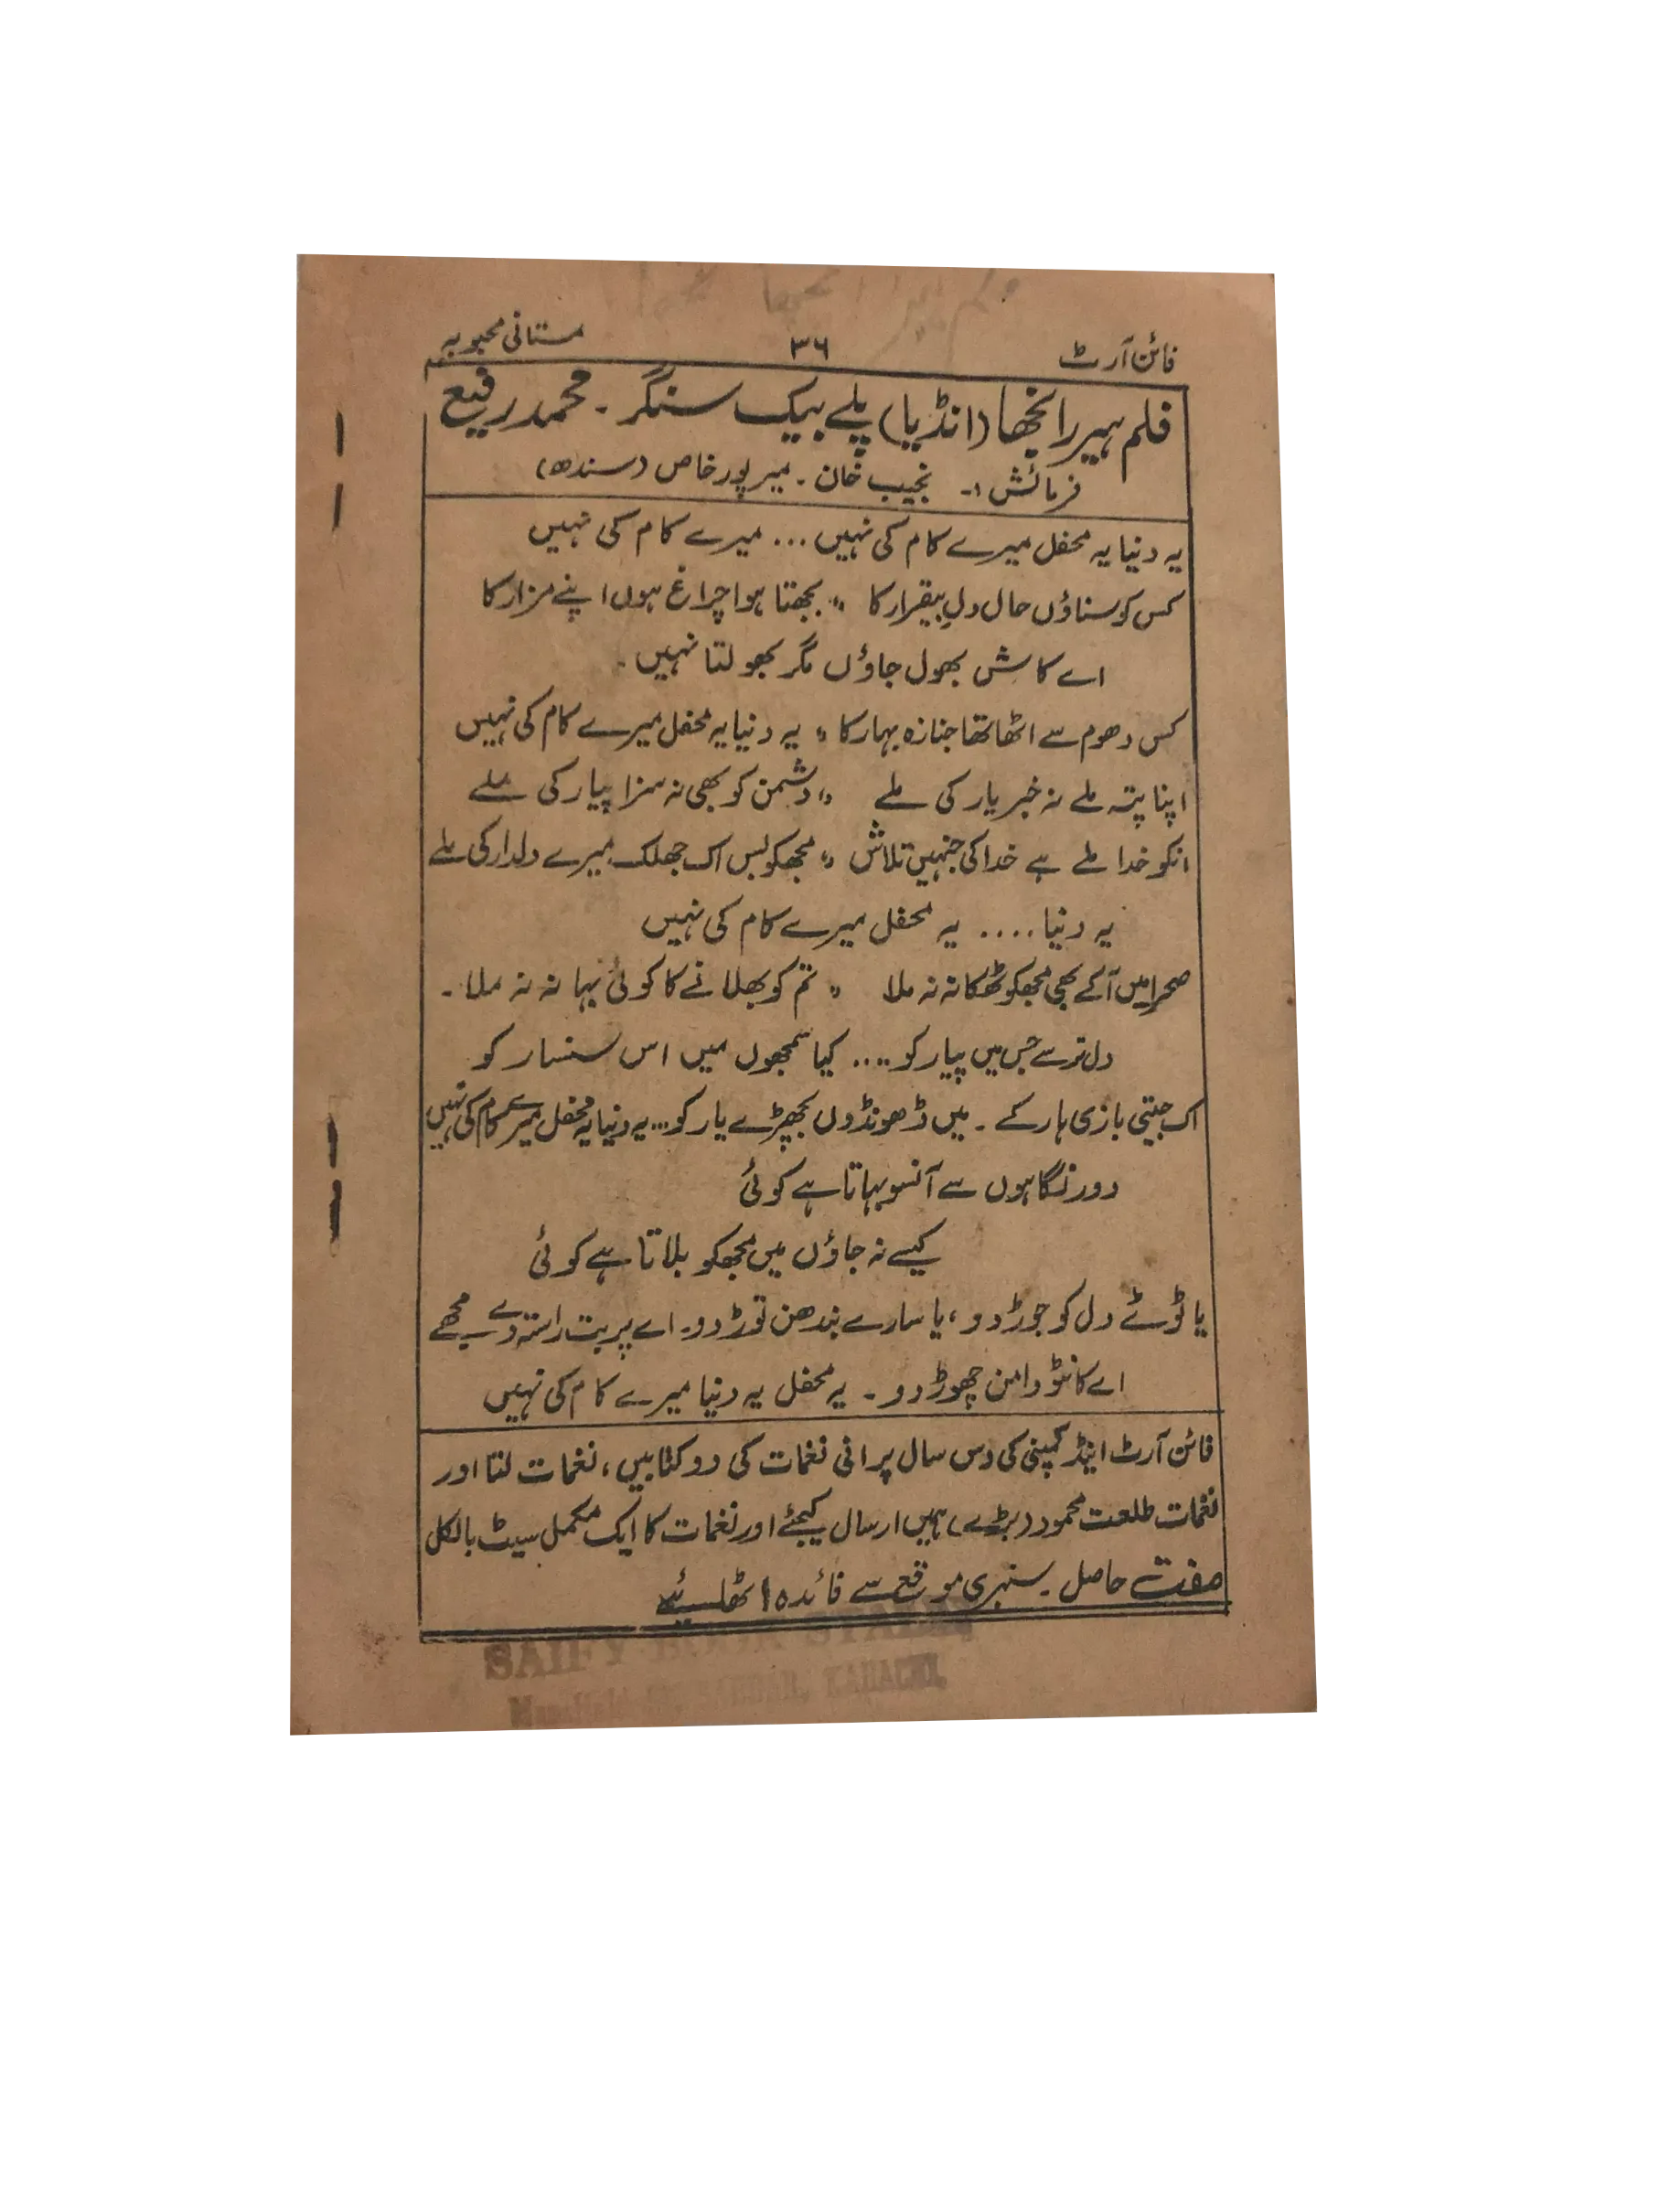 فائن آرٹ ۳۶ مستانی محبوبہ
فلم ہیر رانجھا (انڈیا) پلے بیک سنگر ۔ محمد رفیع
فرمائش :۔ نجیب خان ۔ میرپور خاص (سندھ)
یہ دنیا یہ محفل میرے کام کی نہیں ... میرے کام کی نہیں
کس کو سناؤں حال دل بیقرار کا ،، بجھتا ہوا چراغ ہوں اپنے مزار کا
اے کاش بھول جاؤں مگر بھولتا نہیں ۔
کس دھوم سے اٹھا تھا جنازہ بہار کا ،، یہ دنیا یہ محفل میرے کام کی نہیں
اپنا پتہ ملے نہ خبر یار کی ملے ،، دشمن کو بھی نہ سزا پیار کی ملے
انکو خدا ملے ہے خدا کی جنہیں تلاش ،، مجھکو بس اک جھلک میرے دلدار کی ملے
یہ دنیا .... یہ محفل میرے کام کی نہیں
صحرا میں آکے بھی مجھکو ٹھکانہ نہ ملا ،، تم کو بھلانے کا کوئی بہانہ نہ ملا ۔
دل ترسے جس میں پیار کو .... کیا سمجھوں میں اس سنسار کو
اک جیتی بازی ہار کے ۔ میں ڈھونڈوں بچھڑے یار کو ... یہ دنیا یہ محفل میرے کام کی نہیں
دور نگاہوں سے آنسو بہاتا ہے کوئی
کیسے نہ جاؤں میں مجھکو بلاتا ہے کوئی
یا ٹوٹے دل کو جوڑ دو ، یا سارے بندھن توڑ دو ۔ اے پربت راستہ دے مجھے
اے کانٹو دامن چھوڑ دو ۔ یہ محفل یہ دنیا میرے کام کی نہیں
فائن آرٹ اینڈ کمپنی کی دس سال پرانی نغمات کی دو کتابیں ، نغمات لتا اور
نغمات طلعت محمود (بڑے) ہمیں ارسال کیجئے اور نغمات کا ایک مکمل سیٹ بالکل
مفت حاصل ۔ سنہری موقع سے فائدہ اٹھایئے
SAIFY BOOK STALL
SADDAR, KARACHI.